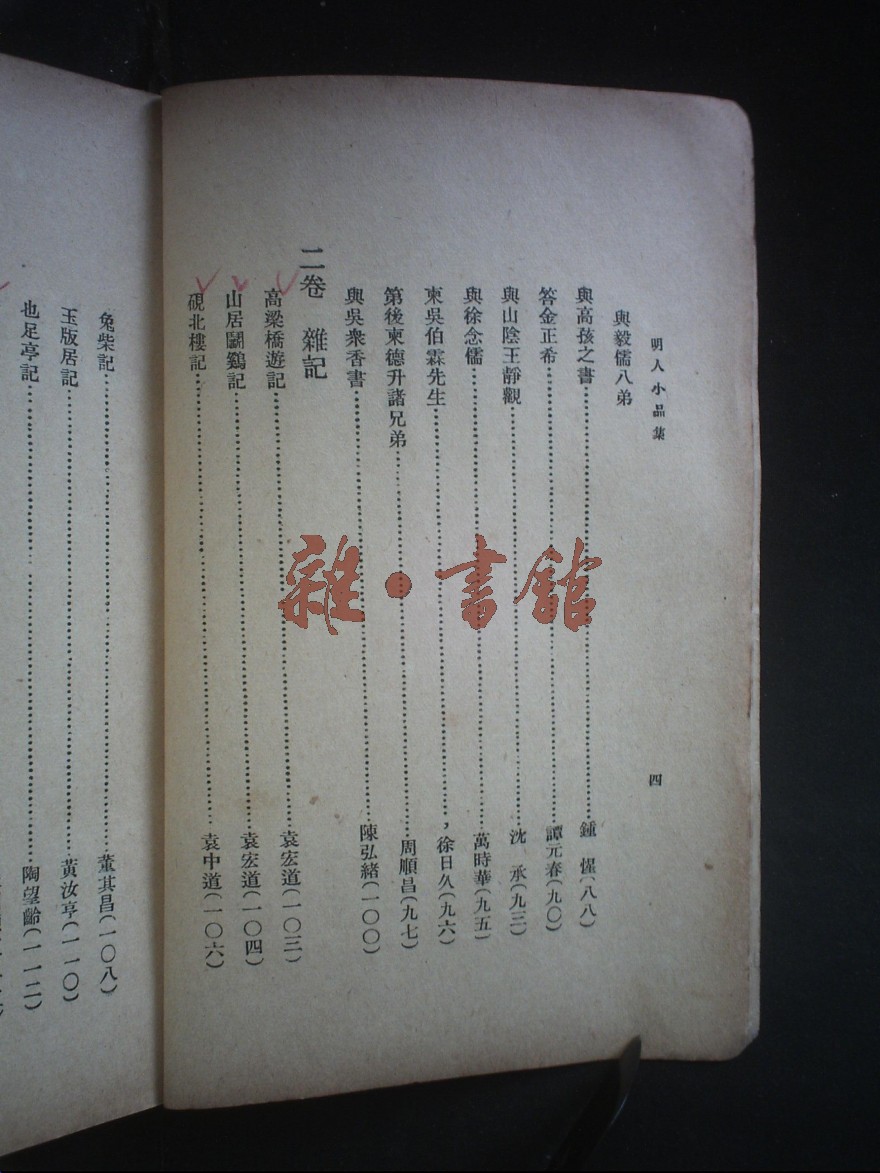 明人小品集
四
與毅儒八弟
與高孩之書……鍾惺(八八)
答金正希……譚元春(九〇)
與山陰王靜觀……沈承(九三)
與徐念儒……萬時華(九五)
柬吳伯霖先生……徐日久(九六)
第後柬德升諸兄弟……周順昌(九七)
與吳衆香書……陳弘緒(一〇〇)
二卷 雜記
高梁橋遊記……袁宏道(一〇三)
山居鬭鷄記……袁宏道(一〇四)
硯北樓記……袁中道(一〇六)
兔柴記……董其昌(一〇八)
玉版居記……黃汝亨(一一〇)
也足亭記……陶望齡(一一二)
雜·書館